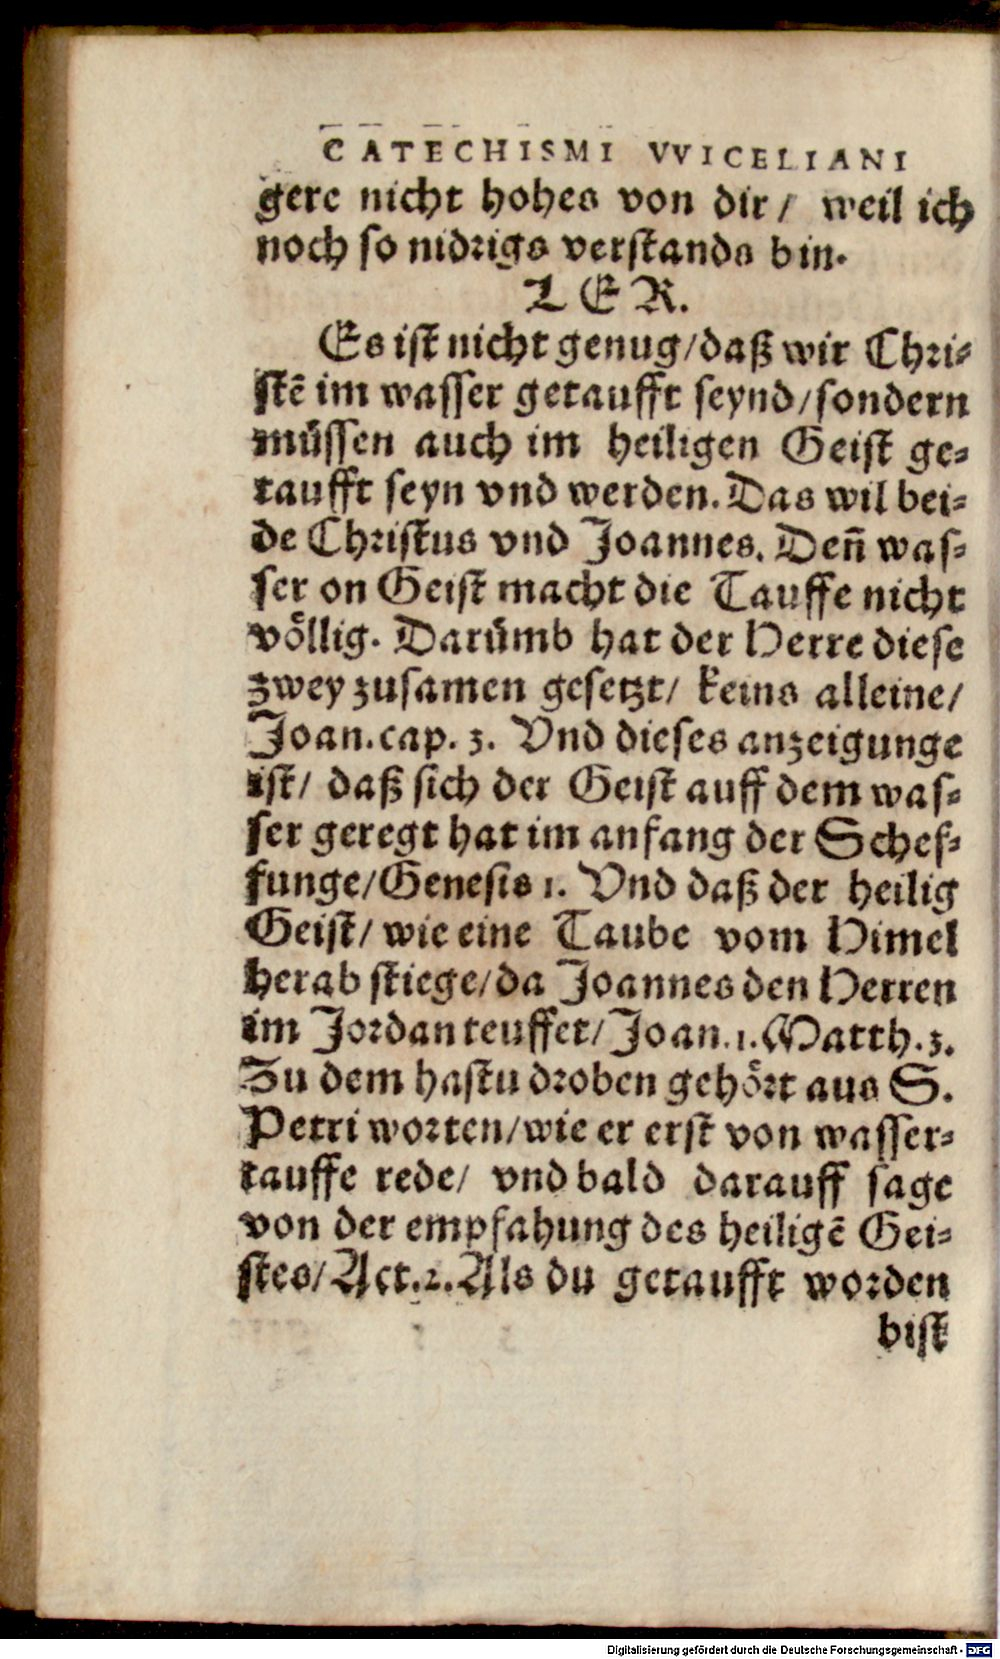 CATECHISMI VVICELIANI
gere nicht hohes von dir / weil ich
noch so nidrigs verstands bin.
LER.
Es ist nicht genug/daß wir Chri-
stē im wasser getaufft seynd/sondern
müssen auch im heiligen Geist ge-
taufft seyn vnd werden. Das wil bei-
de Christus vnd Joannes. Den̄ was-
ser on Geist macht die Tauffe nicht
völlig. Darümb hat der Herre diese
zwey zusamen gesetzt/ keins alleine/
Joan.cap. 3. Vnd dieses anzeigunge
ist/ daß sich der Geist auff dem was-
ser geregt hat im anfang der Schef-
funge/Genesis 1. Vnd daß der heilig
Geist/ wie eine Taube vom Himel
herab stiege/da Joannes den Herren
im Jordan teuffet/Joan.1.Matth.3.
Zu dem hastu droben gehört aus S.
Petri worten/wie er erst von wasser-
tauffe rede/ vnd bald darauff sage
von der empfahung des heiligē Gei-
stes/Act.2.Als du getaufft worden
bist
Digitalisierung gefördert durch die Deutsche Forschungsgemeinschaft - DFG